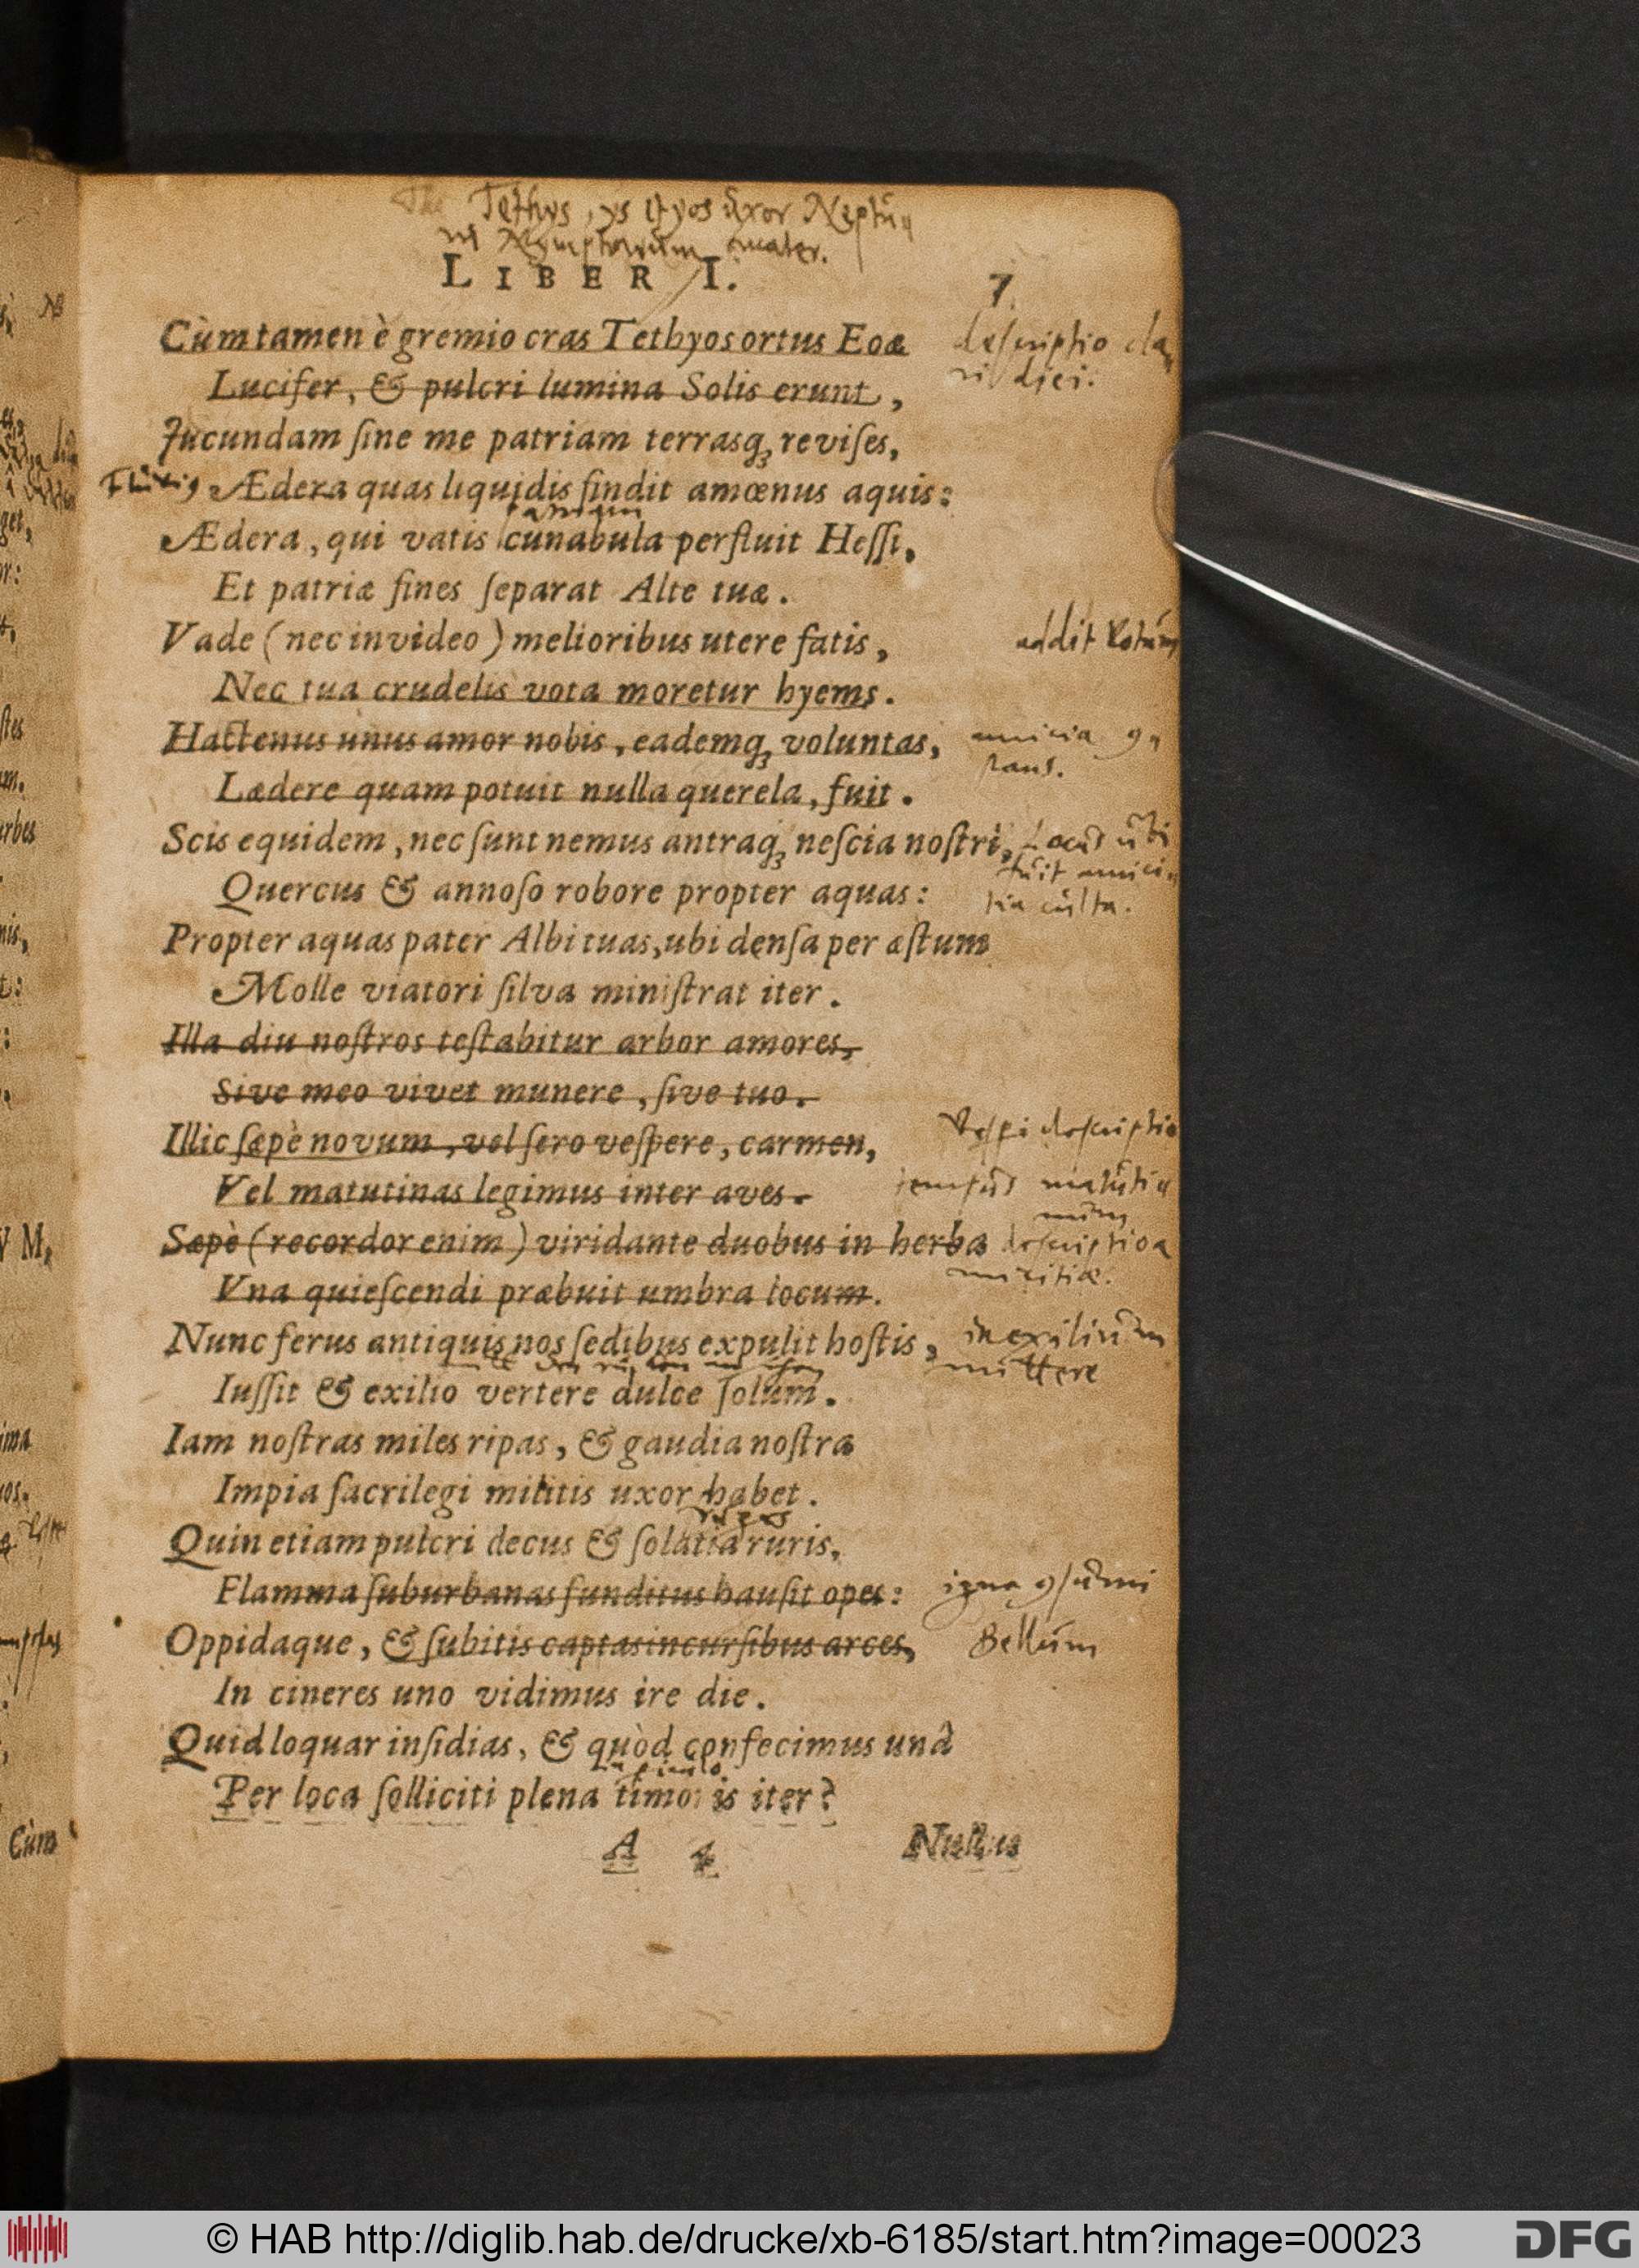 Tethys, ys tyos uxor Neptu
ni Nympharum mater.
LIBER I. 7
Cùm tamen è gremio cras Tethyos ortus Eoæ
descriptio cla
Lucifer, & pulcri lumina Solis erunt,
ri diei.
Jucundam ſine me patriam terrasq́ʒ reviſes,
Ædera quas liquidis findit amœnus aquis:
Ædera, qui vatis cunabula perfluit Heſſi,
Et patriæ fines ſeparat Alte tuæ.
Vade (nec invideo) melioribus utere fatis,
addit votum
Nec tua crudelis vota moretur hyems.
Hactenus unus amor nobis, eademq́ʒ voluntas,
Lædere quam potuit nulla querela, fuit.
Scis equidem, nec ſunt nemus antraq́ʒ neſcia noſtri,
Locus ubi
fuit amici
Quercus & annoſo robore propter aquas:
tia culta.
Propter aquas pater Albi tuas, ubi denſa per æſtum
Molle viatori ſilva miniſtrat iter.
Illa diu noſtros teſtabitur arbor amores,
Sive meo vivet munere, ſive tuo.
Illic ſæpè novum, vel ſero veſpere, carmen,
descriptio
Vel matutinas legimus inter aves.
tempus matuti
num
Sæpè (recordor enim) viridante duobus in herba
descriptio a
Vna quieſcendi præbuit umbra locum.
micitiæ.
Nunc ferus antiquis nos ſedibus expulit hoſtis,
in exilium
mittere
Iuſſit & exilio vertere dulce ſolum.
Iam noſtras miles ripas, & gaudia noſtra
Impia ſacrilegi militis uxor habet.
Quin etiam pulcri decus & ſolatia ruris,
Flamma ſuburbanas funditus hauſit opes:
Oppidaque, & ſubitis captas incurſibus arces,
Bellum
In cineres uno vidimus ire die.
Quid loquar inſidias, & quòd confecimus unâ
Per loca ſolliciti plena timoris iter?
A 4 Nullus
Cùm
© HAB http://diglib.hab.de/drucke/xb-6185/start.htm?image=00023
DFG